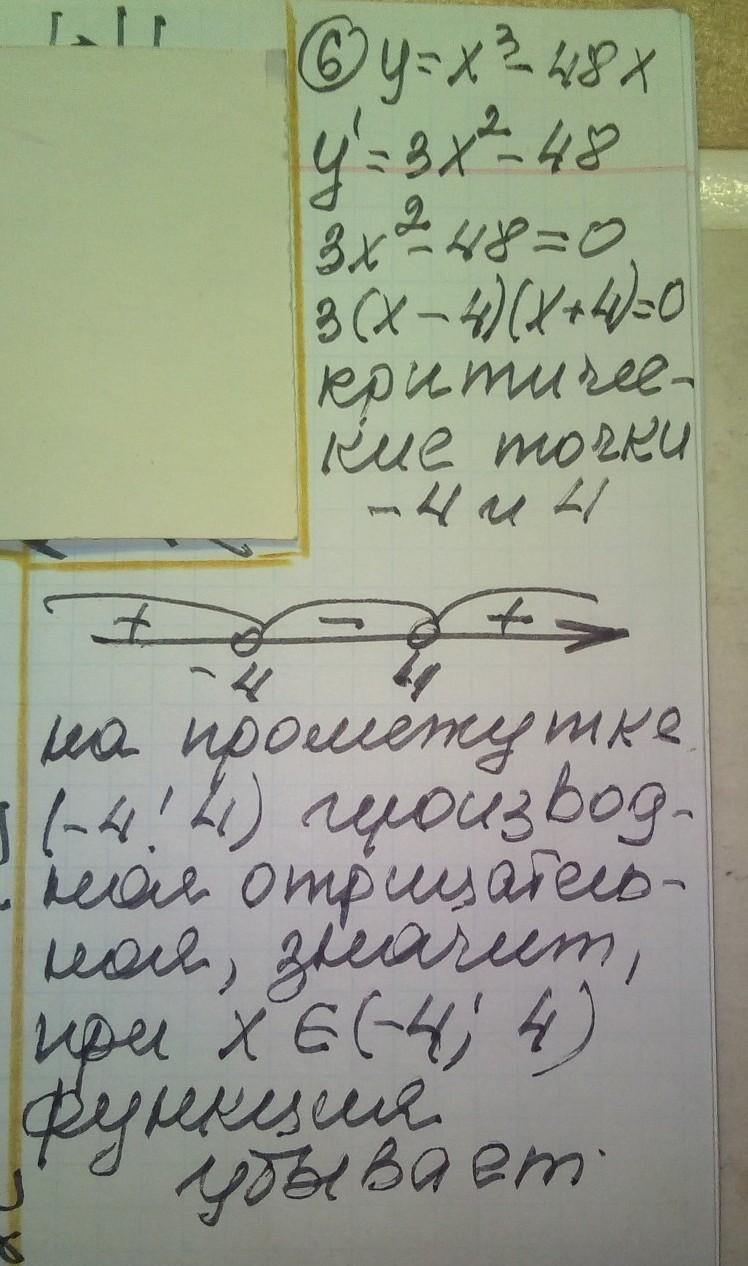 ⑥ y = x³ - 48x
y' = 3x² - 48
3x² - 48 = 0
3(x - 4)(x + 4) = 0
критичес-
кие точки
-4 и 4
+ - +
-4 4
на промежутке
(-4; 4) производ-
ная отрицатель-
ная, значит,
при x ∈ (-4; 4)
функция
убывает.